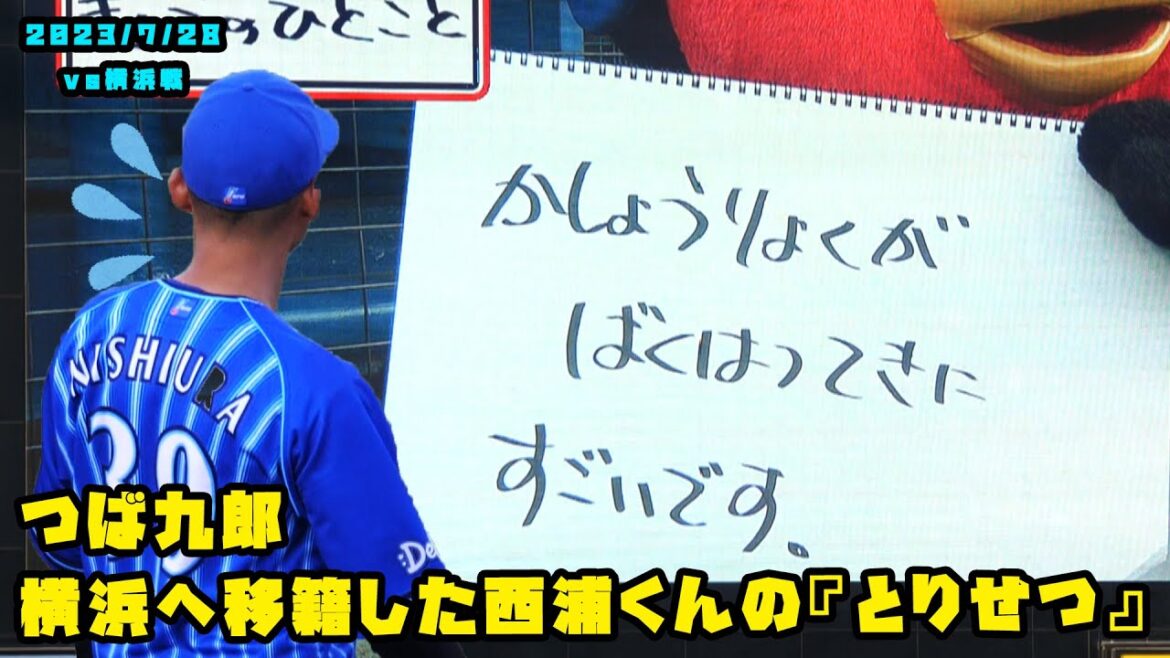 2023/7/28
vs横浜戦
きょうのひとこと
かしょうりょくが
ばくはつてきに
すごいです。
NISHIURA
39
:De
つば九郎
横浜へ移籍した西浦くんの『とりせつ』